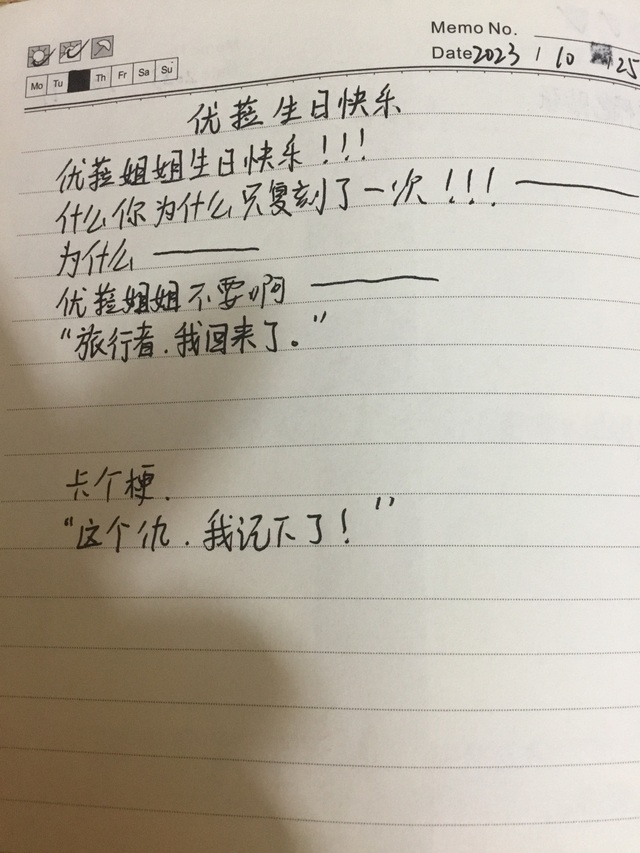 Memo No.
Date 2023 / 10 / 25
Mo Tu Th Fr Sa Su
优菈生日快乐
优菈姐姐生日快乐!!!
什么你为什么只复刻了一次!!!——
为什么——
优菈姐姐不要啊——
“旅行者.我回来了。”
卡个梗.
“这个仇.我记下了!”